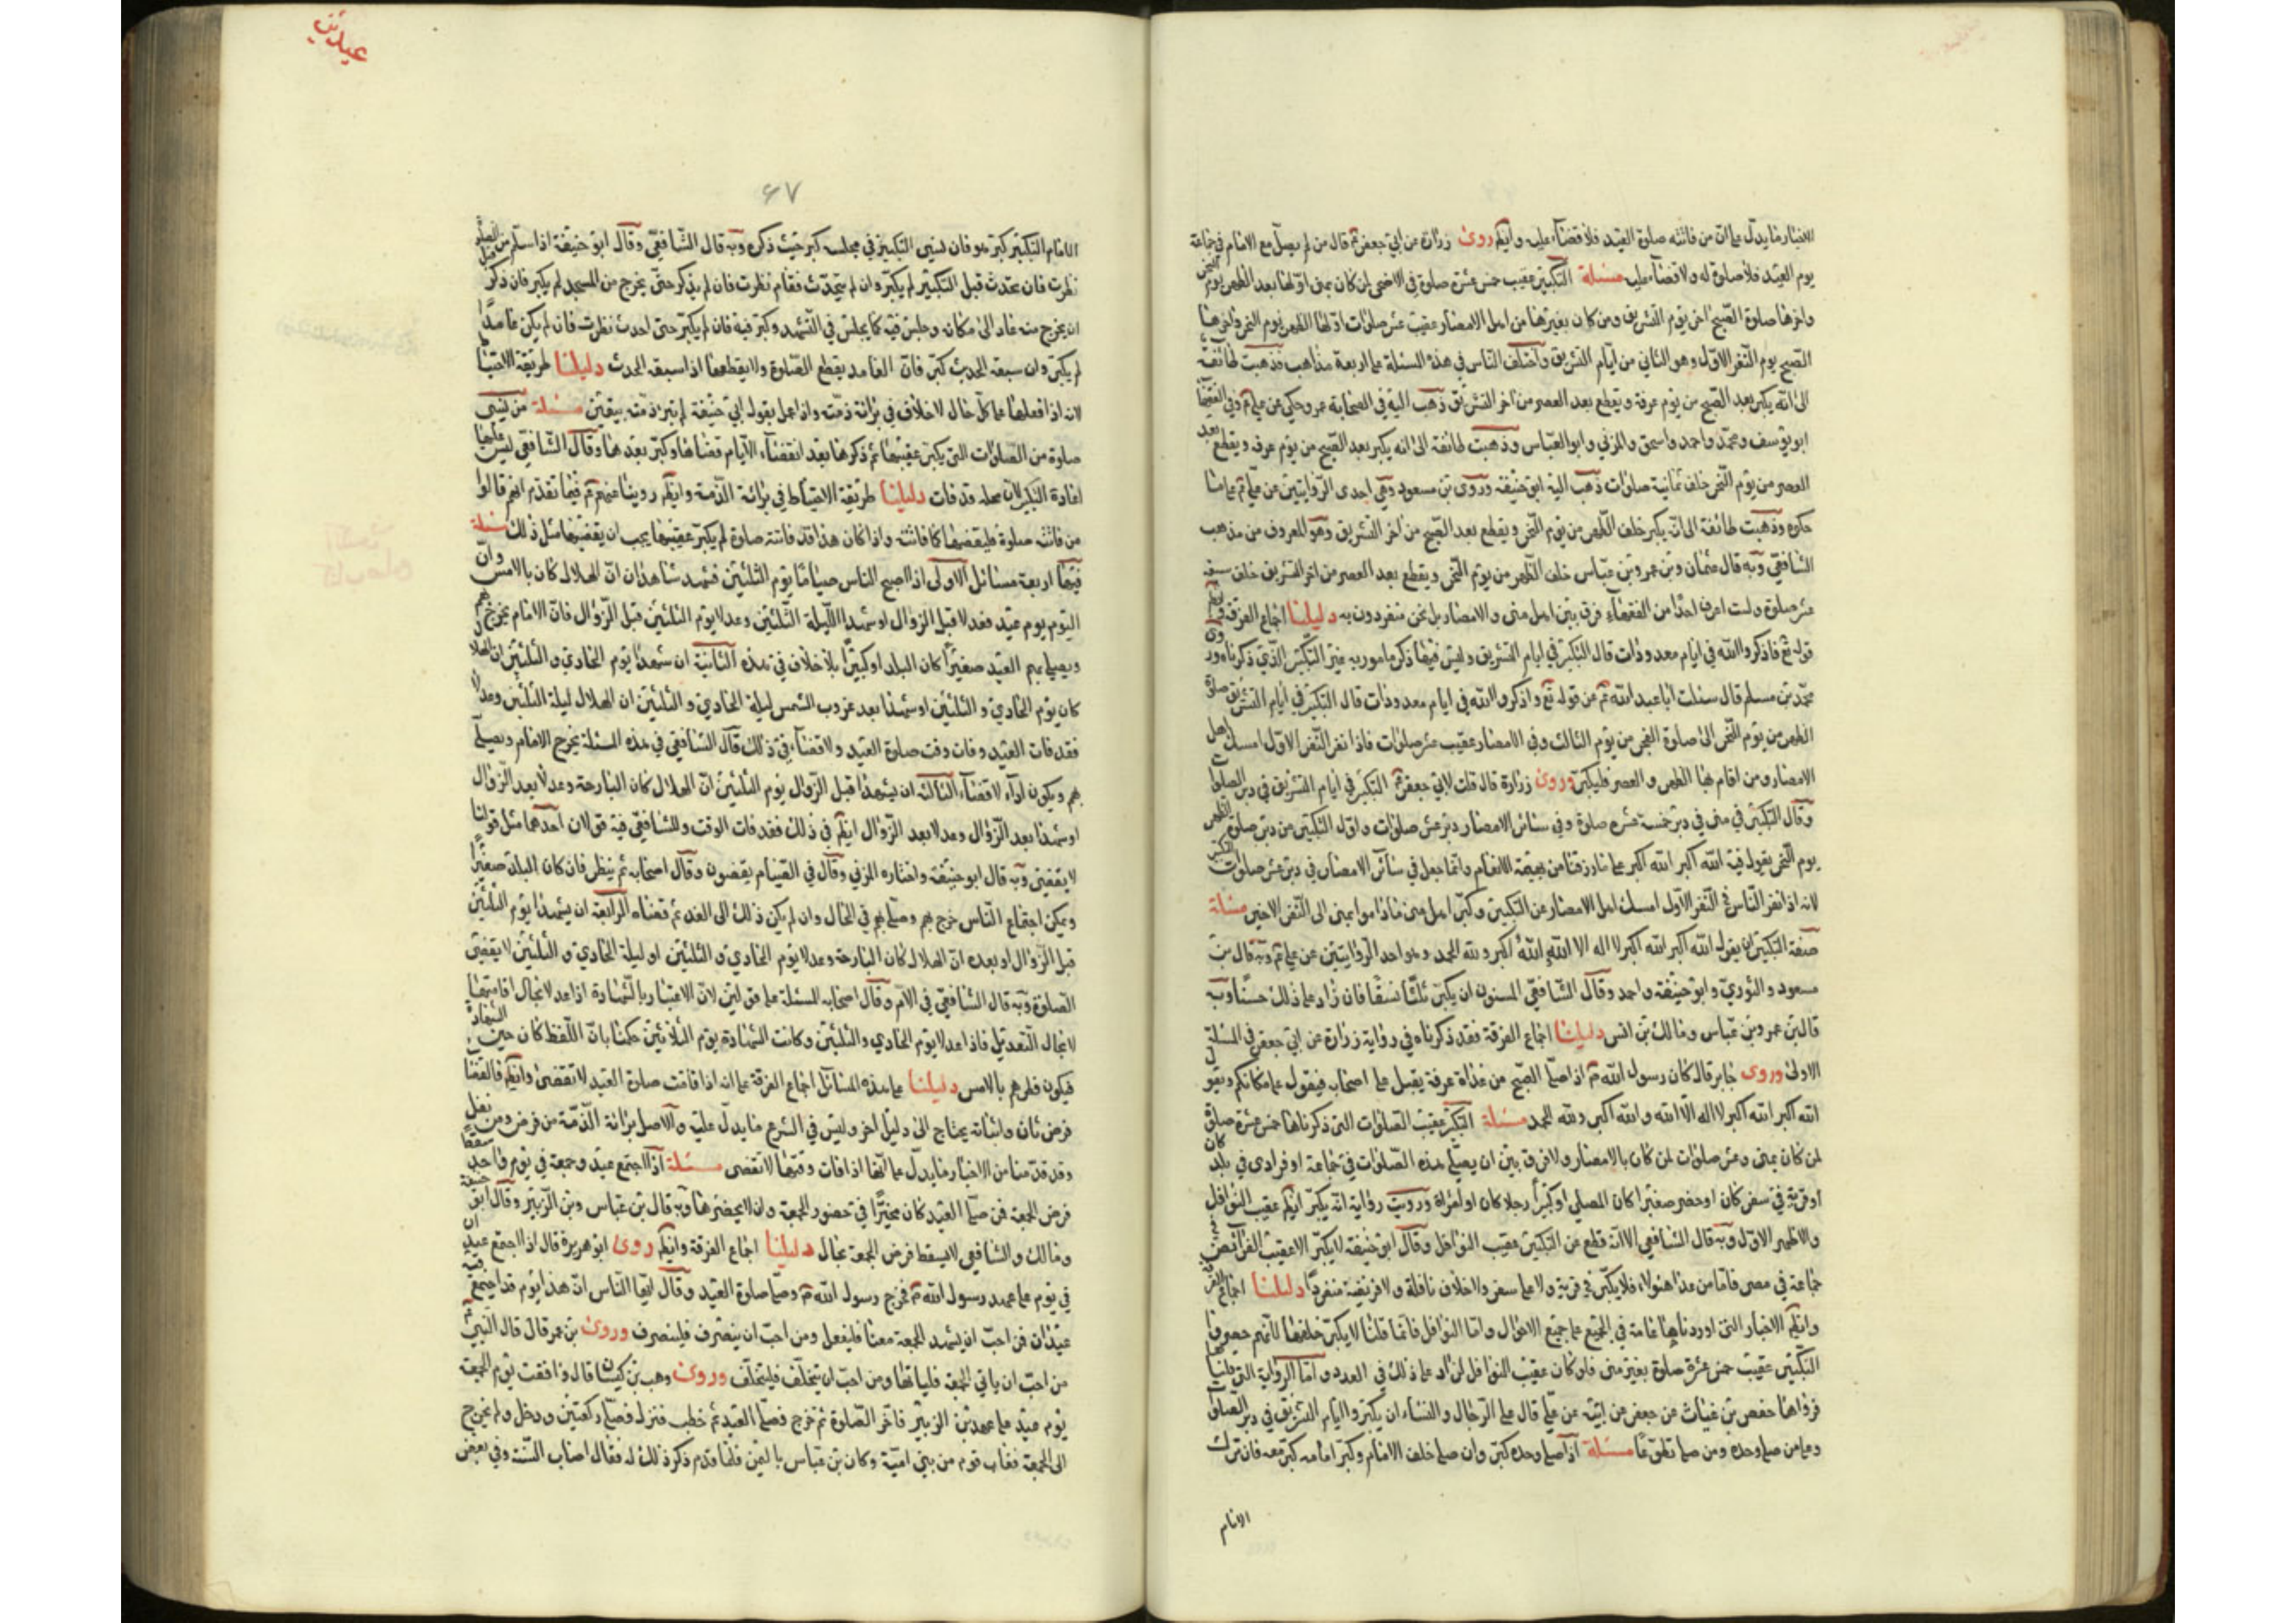 الاخبار ما يدل على ان من فاتته صلوة العيد فلا قضاء عليه وايضم روى زرارة عن ابي جعفر ع قال من لم يصل مع الامام في جماعة
يوم العيد فلا صلوة له ولا قضاء عليه مسئلة التكبير عقيب خمس عشرة صلوة في الاضحى لمن كان بمنى اولها بعد الظهر يوم النحر
واخرها صلوة الصبح اخر يوم التشريق ومن كان بغيرها من اهل الامصار عقيب عشر صلوات اولها الظهر يوم النحر واخرها
الصبح يوم النفر الاول وهو الثاني من ايام التشريق واختلف الناس في هذه المسئلة على اربعة مذاهب فذهبت طائفة
الى انه يكبر بعد الصبح من يوم عرفة ويقطع بعد العصر من اخر التشريق ذهب اليه في الصحابة عمر وحكي عن علي ع وفي الفقهاء
ابو يوسف ومحمد واحمد واسحق والمزني وابو العباس وذهبت طائفة الى انه يكبر بعد الصبح من يوم عرفه ويقطع بعد
العصر من يوم النحر خلف ثمانية صلوات ذهب اليه ابو حنيفة وروى بن مسعود وهي احدى الروايتين عن علي ع على ما
حكوه وذهبت طائفة الى انه يكبر خلف الظهر من يوم النحر ويقطع بعد الصبح من اخر التشريق وهو المعروف من مذهب
الشافعي وبه قال عثمان وبن عمر وبن عباس خلف الظهر من يوم النحر ويقطع بعد العصر من اخر التشريق خلف
عشر صلوة ولست اعرف احدا من الفقهاء فرق بين اهل منى والامصار بل نحن منفردون به دليلنا اجماع الفرقة وايضم
قوله تع فاذكروا الله في ايام معدودات قال التكبير في ايام التشريق وليس فيها ذكر مامور به غير التكبير الذي ذكرناه وروى
محمد بن مسلم قال سئلت ابا عبد الله ع عن قوله تع واذكروا الله في ايام معدودات قال التكبير في ايام التشريق صلوة
الظهر من يوم النحر الى صلوة الفجر من يوم الثالث وفي الامصار عقيب عشر صلوات فاذا نفر النفر الاول امسك اهل
الامصار ومن اقام بمنى الظهر والعصر فليكبر وروى زرارة قال قلت لابي جعفر ع التكبير في ايام التشريق في دبر الصلوات
وقال التكبير في منى في دبر خمسة عشرة صلوة وفي سائر الامصار دبر عشر صلوات واول التكبير من دبر صلوة الظهر
يوم النحر يقول فيه الله اكبر الله اكبر على ما رزقنا من بهيمة الانعام وانما جعل في سائر الامصار في دبر عشر صلوات التكبير
لانه اذا نفر الناس في النفر الاول امسك اهل الامصار عن التكبير وكبر اهل منى ماداموا بمنى الى النفر الاخير مسئلة
صفة التكبير ان يقول الله اكبر الله اكبر لا اله الا الله الله اكبر ولله الحمد وهو احد الروايتين عن علي ع وبه قال بن
مسعود والثوري وابو حنيفة واحمد وقال الشافعي المسنون ان يكبر ثلثا نسقا فان زاد على ذلك حسنا وبه
قال بن عمر وبن عباس ومالك بن انس دليلنا اجماع الفرقة فقد ذكرناه في رواية زرارة عن ابي جعفر في المسئلة
الاولى وروى جابر قال كان رسول الله ص اذا صلى الصبح من غداة عرفة يقبل على اصحابه فيقول على مكانكم ويقول
الله اكبر الله اكبر لا اله الا الله والله اكبر ولله الحمد مسئلة التكبير عقيب الصلوات التي ذكرناها خمس عشرة صلوة
لمن كان بمنى وعشر صلوات لمن كان بالامصار ولا فرق بين ان يصلي هذه الصلوات في جماعة او فرادى في بلد كان
او قرية في سفر كان او حضر صغيرا كان المصلي او كبيرا رجلا كان او امراة ورويت رواية انه يكبر ايضم عقيب النوافل
والاظهر الاول وبه قال الشافعي الا انه قطع عن التكبير عقيب النوافل وقال ابو حنيفة لا يكبر الا عقيب الفرائض
جماعة في مصر فاما من عدا هؤلاء فلا يكبر في قرية ولا على سفر ولا خلاف نافلة ولا فريضة منفردا دليلنا اجماع الفرقة
وايضم الاخبار التي اوردناها عامة في الجميع على جميع الاحوال واما النوافل فانما قلنا لا يكبر خلفها لانهم حصروا
التكبير عقيب خمس عشرة صلوة بغير منى فلو كان عقيب النوافل لزاد على ذلك في العدد واما الرواية التي قلناها
فرواها حفص بن غياث عن جعفر عن ابيه عن علي قال على الرجال والنساء ان يكبروا ايام التشريق في دبر الصلوات
وعلى من صلى وحده ومن صلى تطوعا مسئلة اذا صلى وحده كبر وان صلى خلف الامام وكبر امامه كبر معه فان ترك
الامام
عيدين
٤٧
الامام التكبير كبر هو فان نسي التكبير في مجلسه كبر حيث ذكره وبه قال الشافعي وقال ابو حنيفة اذا سلم من الصلوة
نظرت فان تحدث قبل التكبير لم يكبر وان لم يتحدث فقام نظرت فان لم يذكر حتى يخرج من المسجد لم يكبر فان ذكر قبل
ان يخرج منه عاد الى مكانه وجلس فيه كما يجلس في التشهد وكبر فيه فان لم يكبر حتى احدث نظرت فان لم يكن عامدا
لم يكبر وان سبقه الحدث كبر فان العامد يقطع الصلوة ولا يقطعها اذا سبقه الحدث دليلنا طريقة الاحتياط
لانه اذا فعلها على كل حال لا خلاف في برائة ذمته واذا عمل بقول ابي حنيفة لم تبرا ذمته بيقين مسئلة من نسي
صلوة من الصلوات التي يكبر عقيبها ثم ذكرها بعد انقضاء الايام قضاها وكبر بعدها وقال الشافعي ليس عليه
اعادة التكبير لان محله قد فات دليلنا طريقة الاحتياط في برائة الذمة وايضم روينا عنهم ع فيما تقدم انهم قالوا
من فاتته صلوة فليقضها كما فاتته واذا كان هذا قد فاتته صلوة لم يكبر عقيبها يجب ان يقضيها مثل ذلك مسئلة
فيها اربعة مسائل الاولى اذا اصبح الناس صياما يوم الثلثين فشهد شاهدان ان الهلال كان بالامس وان
اليوم يوم عيد فعدلا قبل الزوال او شهدا الليلة الثلثين وعدلا يوم الثلثين قبل الزوال فان الامام يخرج بهم
ويصلي بهم العيد صغيرا كان البلد او كبيرا بلا خلاف في هذه الثانية ان شهدا يوم الحادي والثلثين ان الهلال
كان يوم الحادي والثلثين او شهدا بعد غروب الشمس ليلة الحادي والثلثين ان الهلال ليلة الثلثين وعدلا
فقد فات العيد وفات وقت صلوة العيد ولا قضاء في ذلك قال الشافعي في هذه المسئلة يخرج الامام ويصلي
بهم ويكون اداء لا قضاء الثالثة ان يشهدا قبل الزوال يوم الثلثين ان الهلال كان البارحة وعدلا بعد الزوال
او شهدا بعد الزوال وعدلا بعد الزوال ايضم في ذلك فقد فات الوقت وللشافعي فيه قولان احدهما مثل قولنا
لا يقضى وبه قال ابو حنيفة واختاره المزني وقال في الصيام يقضون وقال اصحابه ثم ينظر فان كان البلد صغيرا
ويمكن اجتماع الناس خرج بهم وصلى بهم في الحال وان لم يكن ذلك الى الغد ثم قضاه الرابعة ان يشهدا يوم الثلثين
قبل الزوال او بعده ان الهلال كان البارحة وعدلا يوم الحادي والثلثين او ليلة الحادي والثلثين لا يقضى
الصلوة وبه قال الشافعي في الام وقال اصحابه المسئلة على قولين لان الاعتبار بالشهادة اذا عدلا بحال اقامتها
لا بحال التعديل فاذا عدلا يوم الحادي والثلثين وكانت الشهادة يوم الثلاثين حكمنا بان اللفظ كان حين الشهادة
فيكون فطرهم بالامس دليلنا على هذه المسائل اجماع الفرقة على انه اذا فاتت صلوة العيد لا تقضى وايضم فالقضاء
فرض ثان واثباته يحتاج الى دليل اخر وليس في الشرع ما يدل عليه والاصل برائة الذمة من فرض ومن نفل
وقد قدمنا من الاخبار ما يدل على انها اذا فات وقتها لا تقضى مسئلة اذا اجتمع عيد وجمعة في يوم واحد سقط
فرض الجمعة فمن صلى العيد كان مخيرا في حضور الجمعة وان لا يحضرها وبه قال بن عباس وبن الزبير وقال ابو حنيفة
ومالك والشافعي لا يسقط فرض الجمعة بحال دليلنا اجماع الفرقة وايضم روى ابو هريرة قال اذا اجتمع عيد ان
في يوم على عهد رسول الله ص فخرج رسول الله ص وصلى صلوة العيد وقال ايها الناس ان هذا يوم قد اجتمع فيه
عيدان فمن احب ان يشهد الجمعة معنا فليفعل ومن احب ان ينصرف فلينصرف وروى بن عمر قال قال النبي
من احب ان ياتي الجمعة فلياتها ومن احب ان يتخلف فليتخلف وروى وهب بن كيسان قال وافقت يوم الجمعة
يوم عيد على عهد بن الزبير فاخر الصلوة ثم خرج فصلى العيد ثم خطب فنزل فصلى ركعتين ودخل ولم يخرج
الى الجمعة فعاب قوم من بني امية وكان بن عباس باليمن فلما قدم ذكر ذلك له فقال اصاب السنة وفي بعض